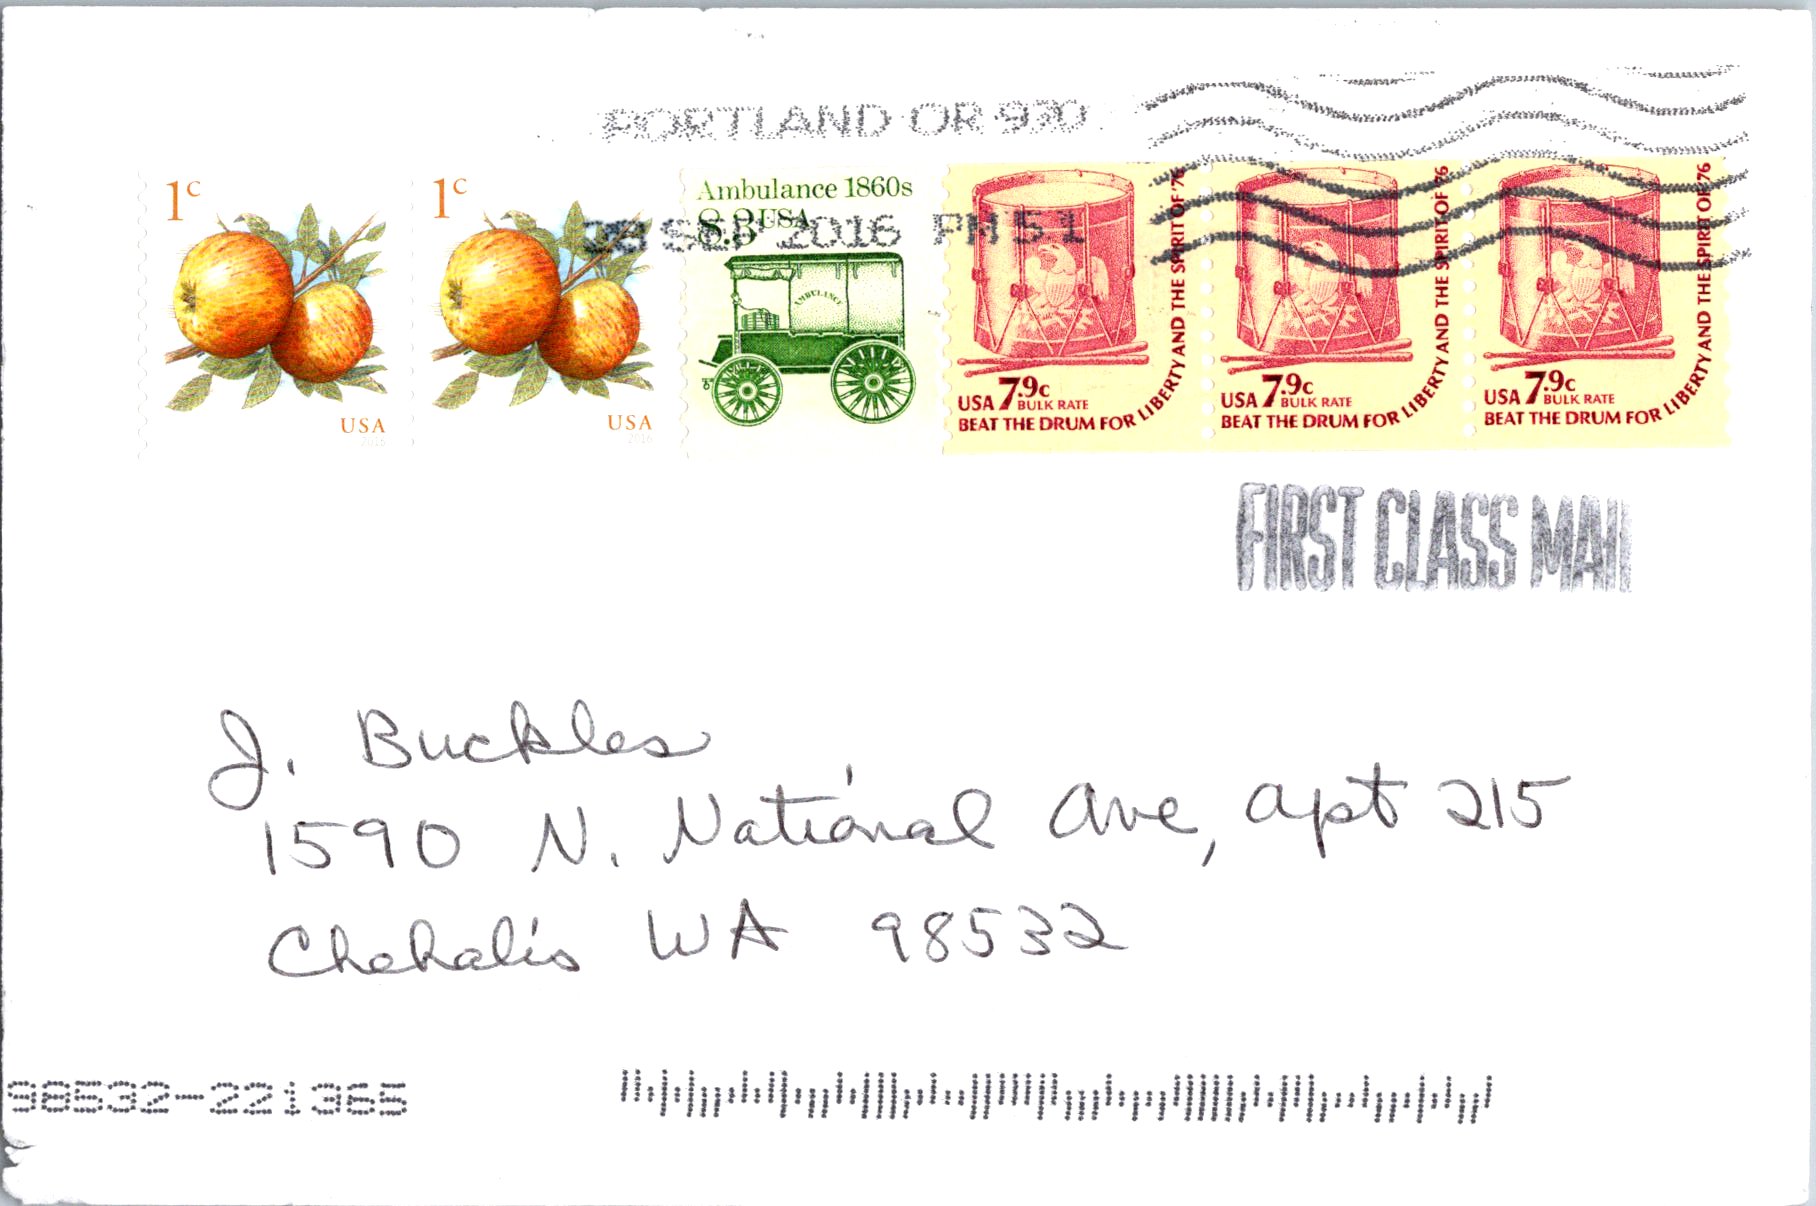 PORTLAND OR 970
1c
1c
Ambulance 1860s
8.3 USA
SEP 2016 PM 5 1
AMBULANCE
USA
2016
USA
2016
USA 7.9c
BULK RATE
BEAT THE DRUM FOR LIBERTY AND THE SPIRIT OF '76
USA 7.9c
BULK RATE
BEAT THE DRUM FOR LIBERTY AND THE SPIRIT OF '76
USA 7.9c
BULK RATE
BEAT THE DRUM FOR LIBERTY AND THE SPIRIT OF '76
FIRST CLASS MAIL
J. Buckles
1590 N. National Ave, Apt 215
Chehalis WA 98532